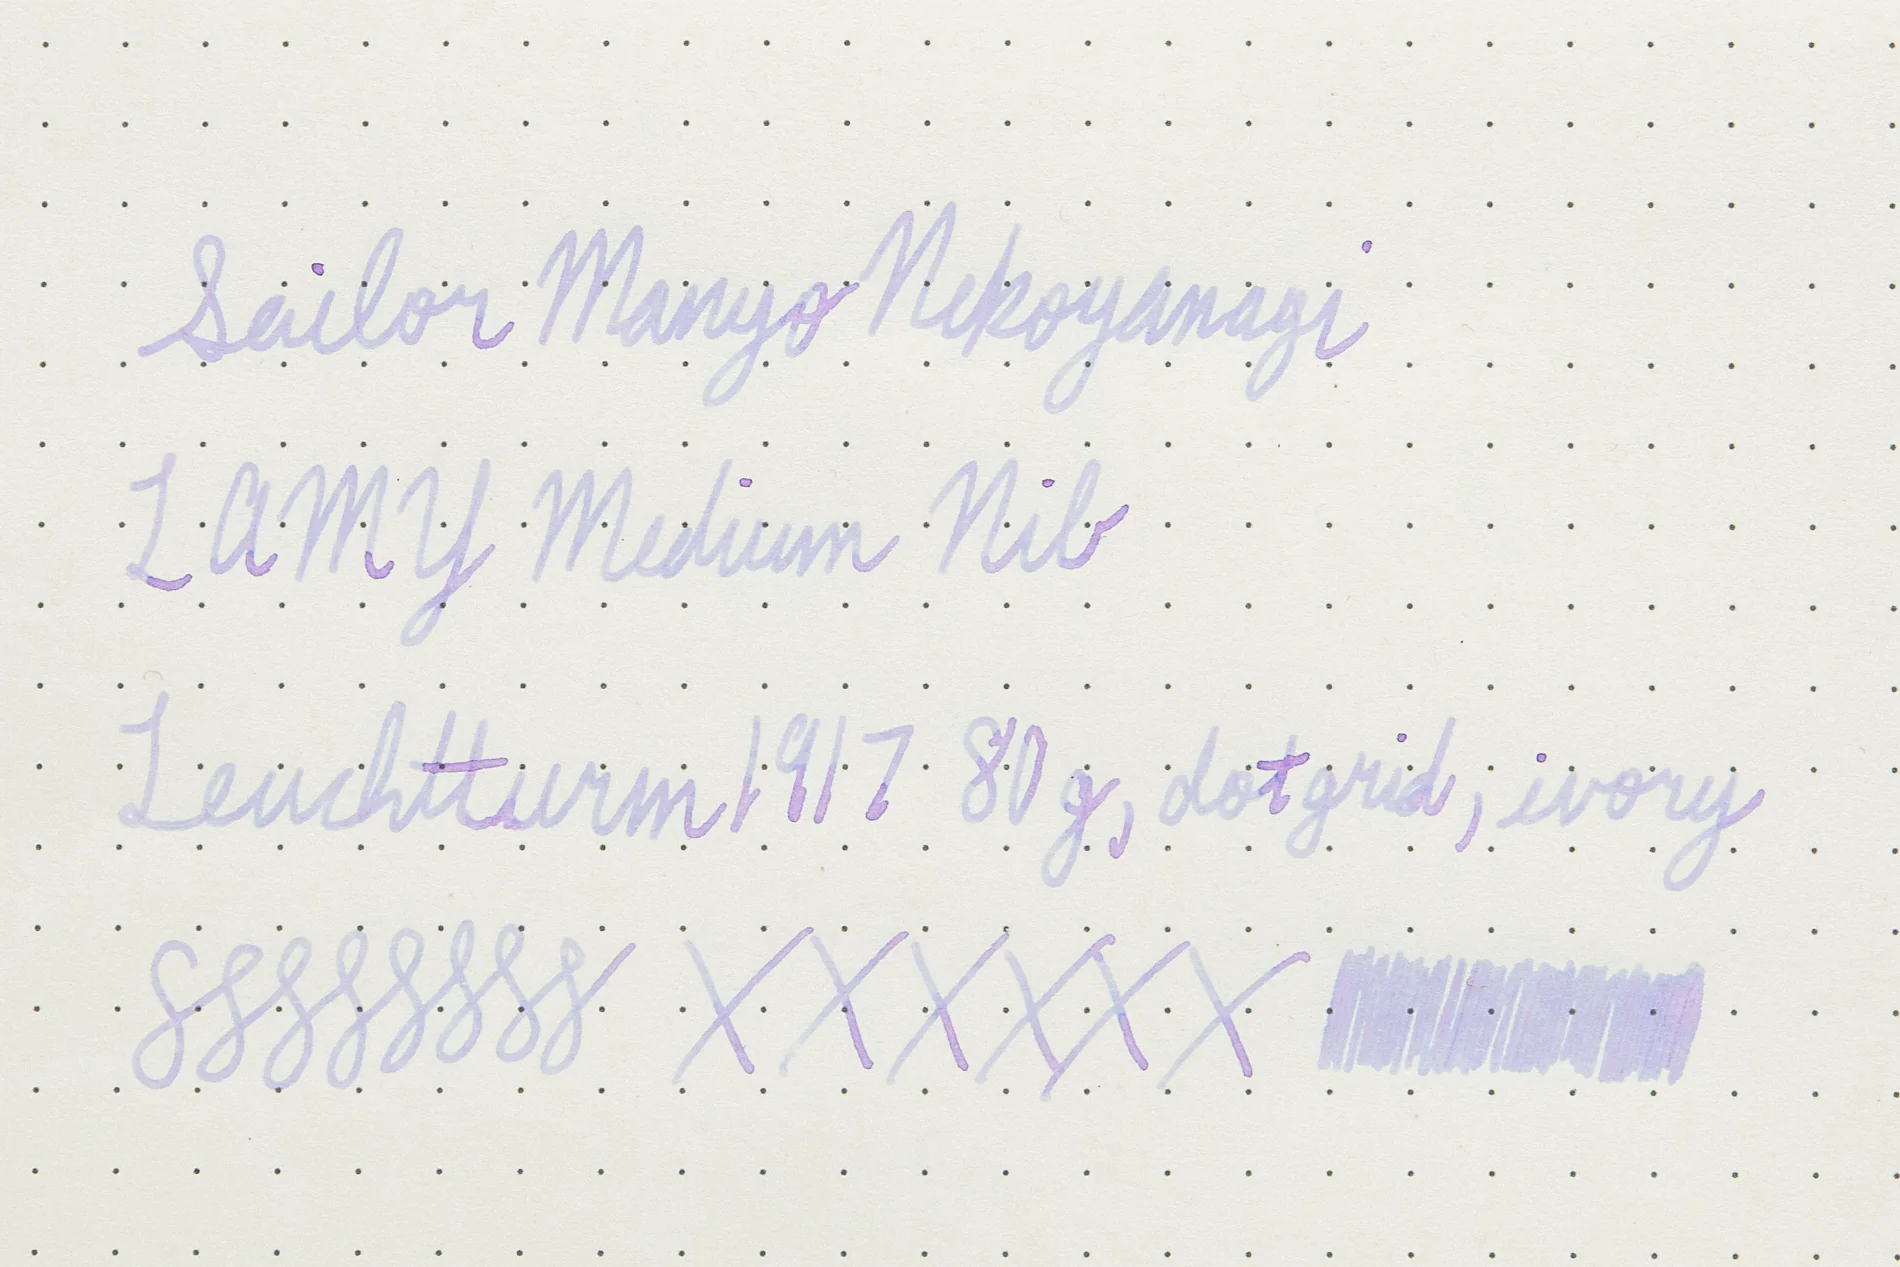 Sailor Manyo Nekoyanagi
LAMY Medium Nib
Leuchtturm1917 80g, dotgrid, ivory
XXXXXX